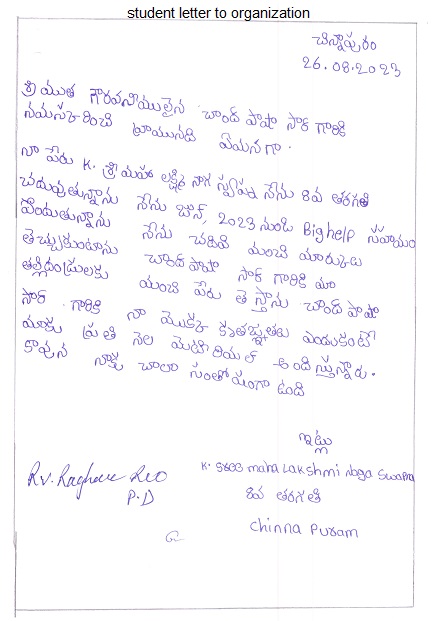 student letter to organization
చిన్నాపురం
26.08.2023
శ్రీయుత గౌరవనీయులైన చాంద్ పాషా సార్ గారికి
నమస్కరించి వ్రాయునది ఏమనగా.
నా పేరు K. శ్రీ మహా లక్ష్మి నాగ స్వప్న నేను 8వ తరగతి
చదువుతున్నాను నేను జూన్, 2023 నుండి Bighelp సహాయం
పొందుతున్నాను నేను చదివి మంచి మార్కులు
తెచ్చుకుంటాను చాంద్ పాషా సార్ గారికి మా
తల్లిదండ్రులకు మంచి పేరు తెస్తాను చాంద్ పాషా
సార్ గారికి నా యొక్క కృతజ్ఞతలు ఎందుకంటే
మాకు ప్రతి నెల మెటీరియల్ అందిస్తున్నారు.
కావున నాకు చాలా సంతోషంగా ఉంది
ఇట్లు
K. sree maha Lakshmi Naga Swapna
8వ తరగతి
Chinna Puram
RV. Raghava Rao
P.D